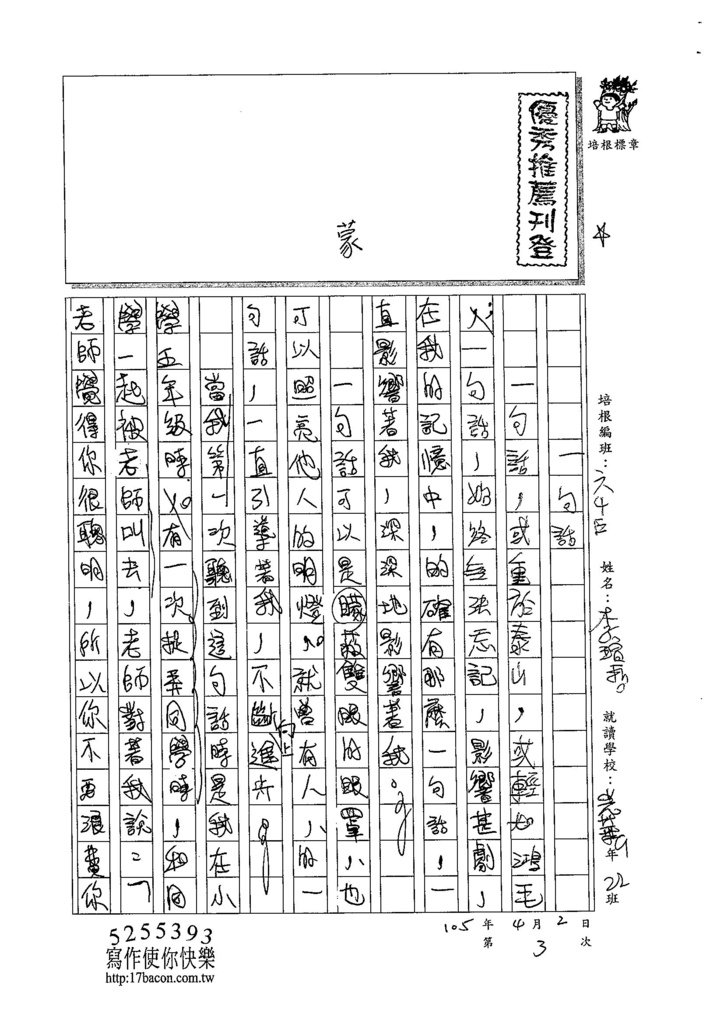 優秀推薦刊登
培根標章
蒙
培根編班：六4日
姓名：李
就讀學校：光華 年 22 班
一句話
一句話，或重於泰山，或輕如鴻毛，
一句話，始終無法忘記，影響甚劇，
在我的記憶中，的確有那麼一句話，一
直影響著我，深深地影響著我。
一句話可以是矇蔽雙眼的眼罩，也
可以照亮他人的明燈，就曾有人的一
句話，一直引導著我，不斷向上進步。
當我第一次聽到這句話時是我在小
學五年級時，有一次捉弄同學時，和同
學一起被老師叫去，老師對著我說：「
老師覺得你很聰明，所以你不要浪費你
105年4月2日
第3次
5255393
寫作使你快樂
http:17bacon.com.tw